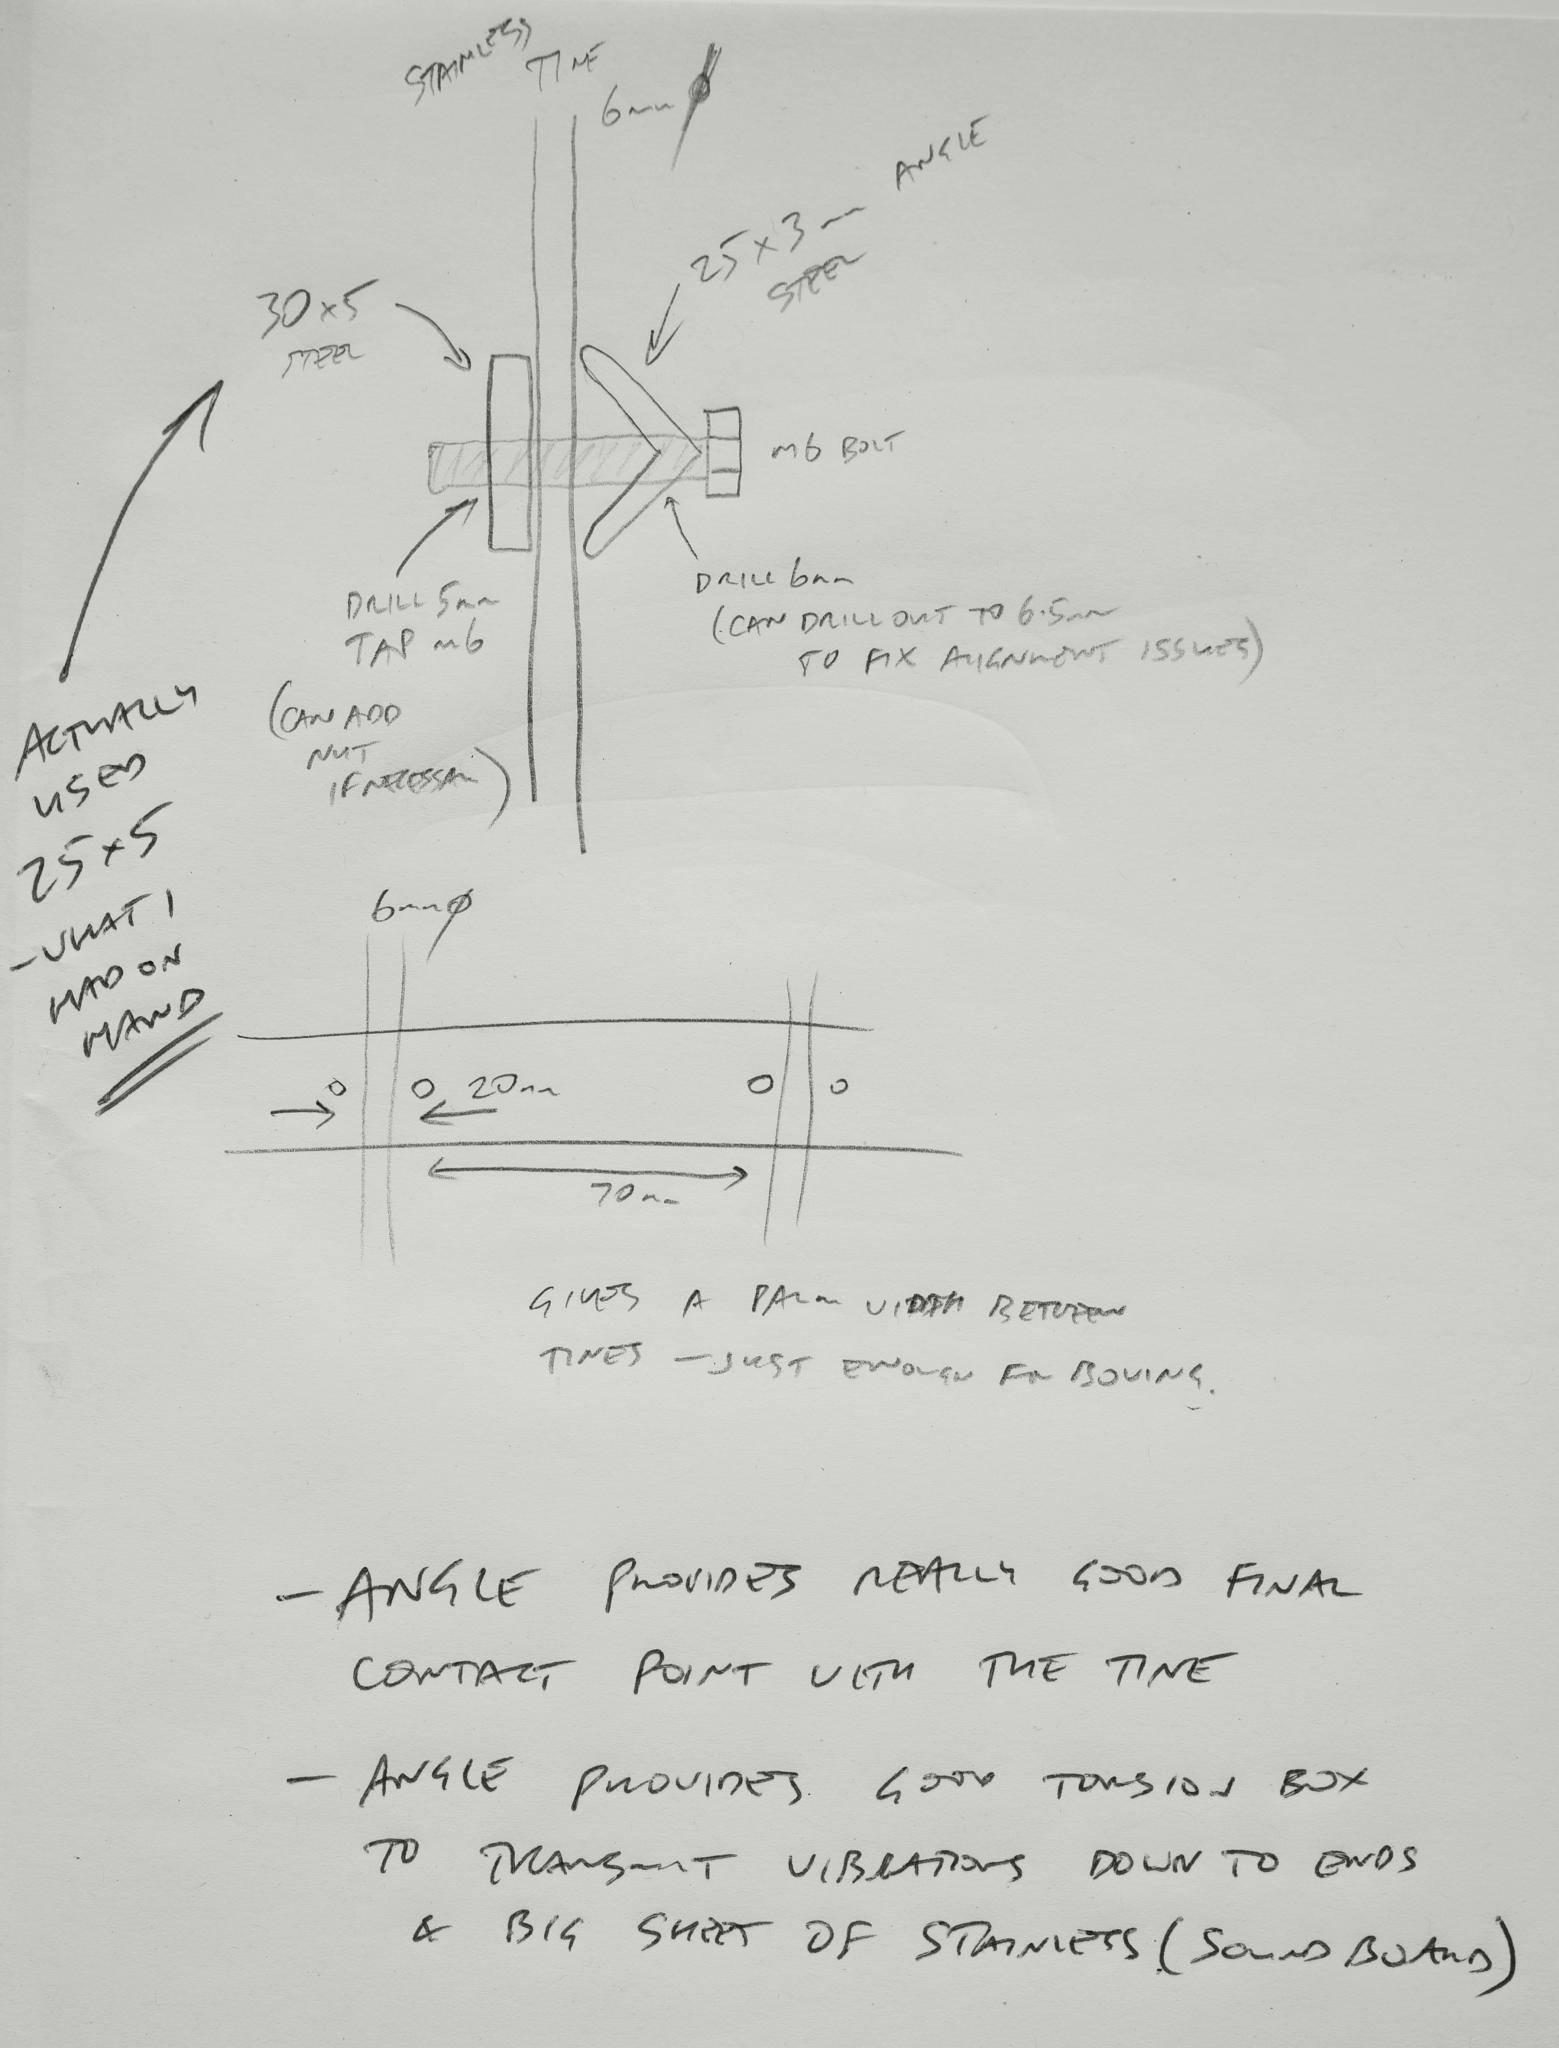 STAINLESS
TINE
6mm ø
ANGLE
25 x 3mm
STEEL
30 x 5
STEEL
M6 BOLT
DRILL 5mm
TAP M6
(CAN ADD
NUT
IF NECESSAR)
DRILL 6mm
(CAN DRILL OUT TO 6.5mm
TO FIX ALIGNMENT ISSUES)
ACTUALLY
USED
25 x 5
- WHAT I
HAD ON
HAND
6mm ø
20mm
70mm
GIVES A PALM WIDTH BETWEEN
TINES - JUST ENOUGH FOR BOWING.
- ANGLE PROVIDES REALLY GOOD FINAL
CONTACT POINT WITH THE TINE
- ANGLE PROVIDES GOOD TORSION BOX
TO TRANSMIT VIBRATIONS DOWN TO ENDS
& BIG SHEET OF STAINLESS (SOUND BOARD)